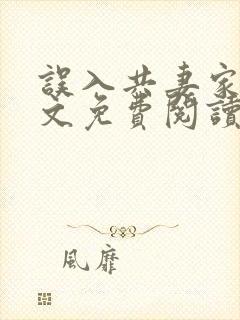 誤入共妻家
文免費閱讀
風靡